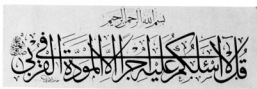 بسم الله الرحمن الرحيم
قل لا أسألكم عليه أجرا إلا المودة في القربى